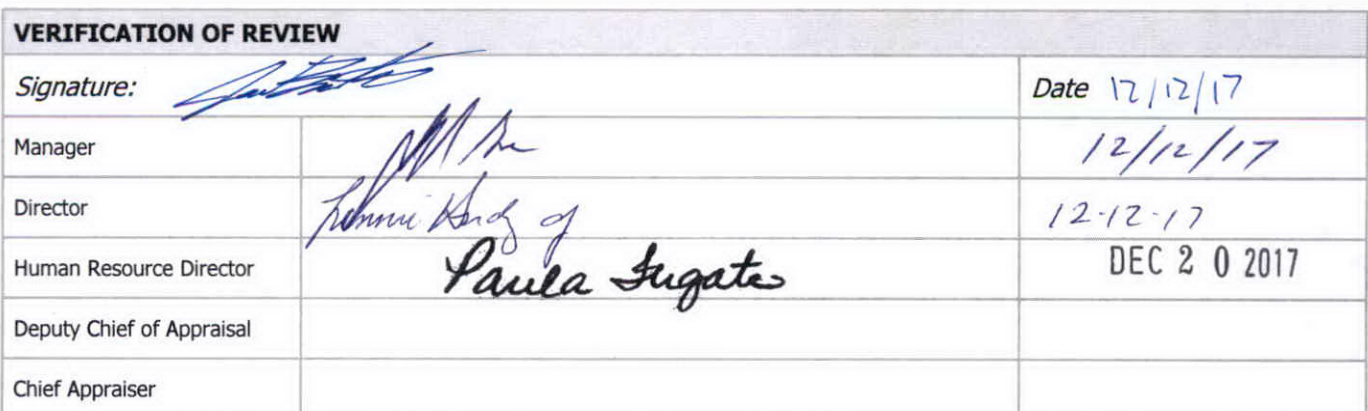 VERIFICATION OF REVIEW
Signature: Date 12/12/17
Manager 12/12/17
Director 12-12-17
Human Resource Director Paula Fugate DEC 2 0 2017
Deputy Chief of Appraisal
Chief Appraiser